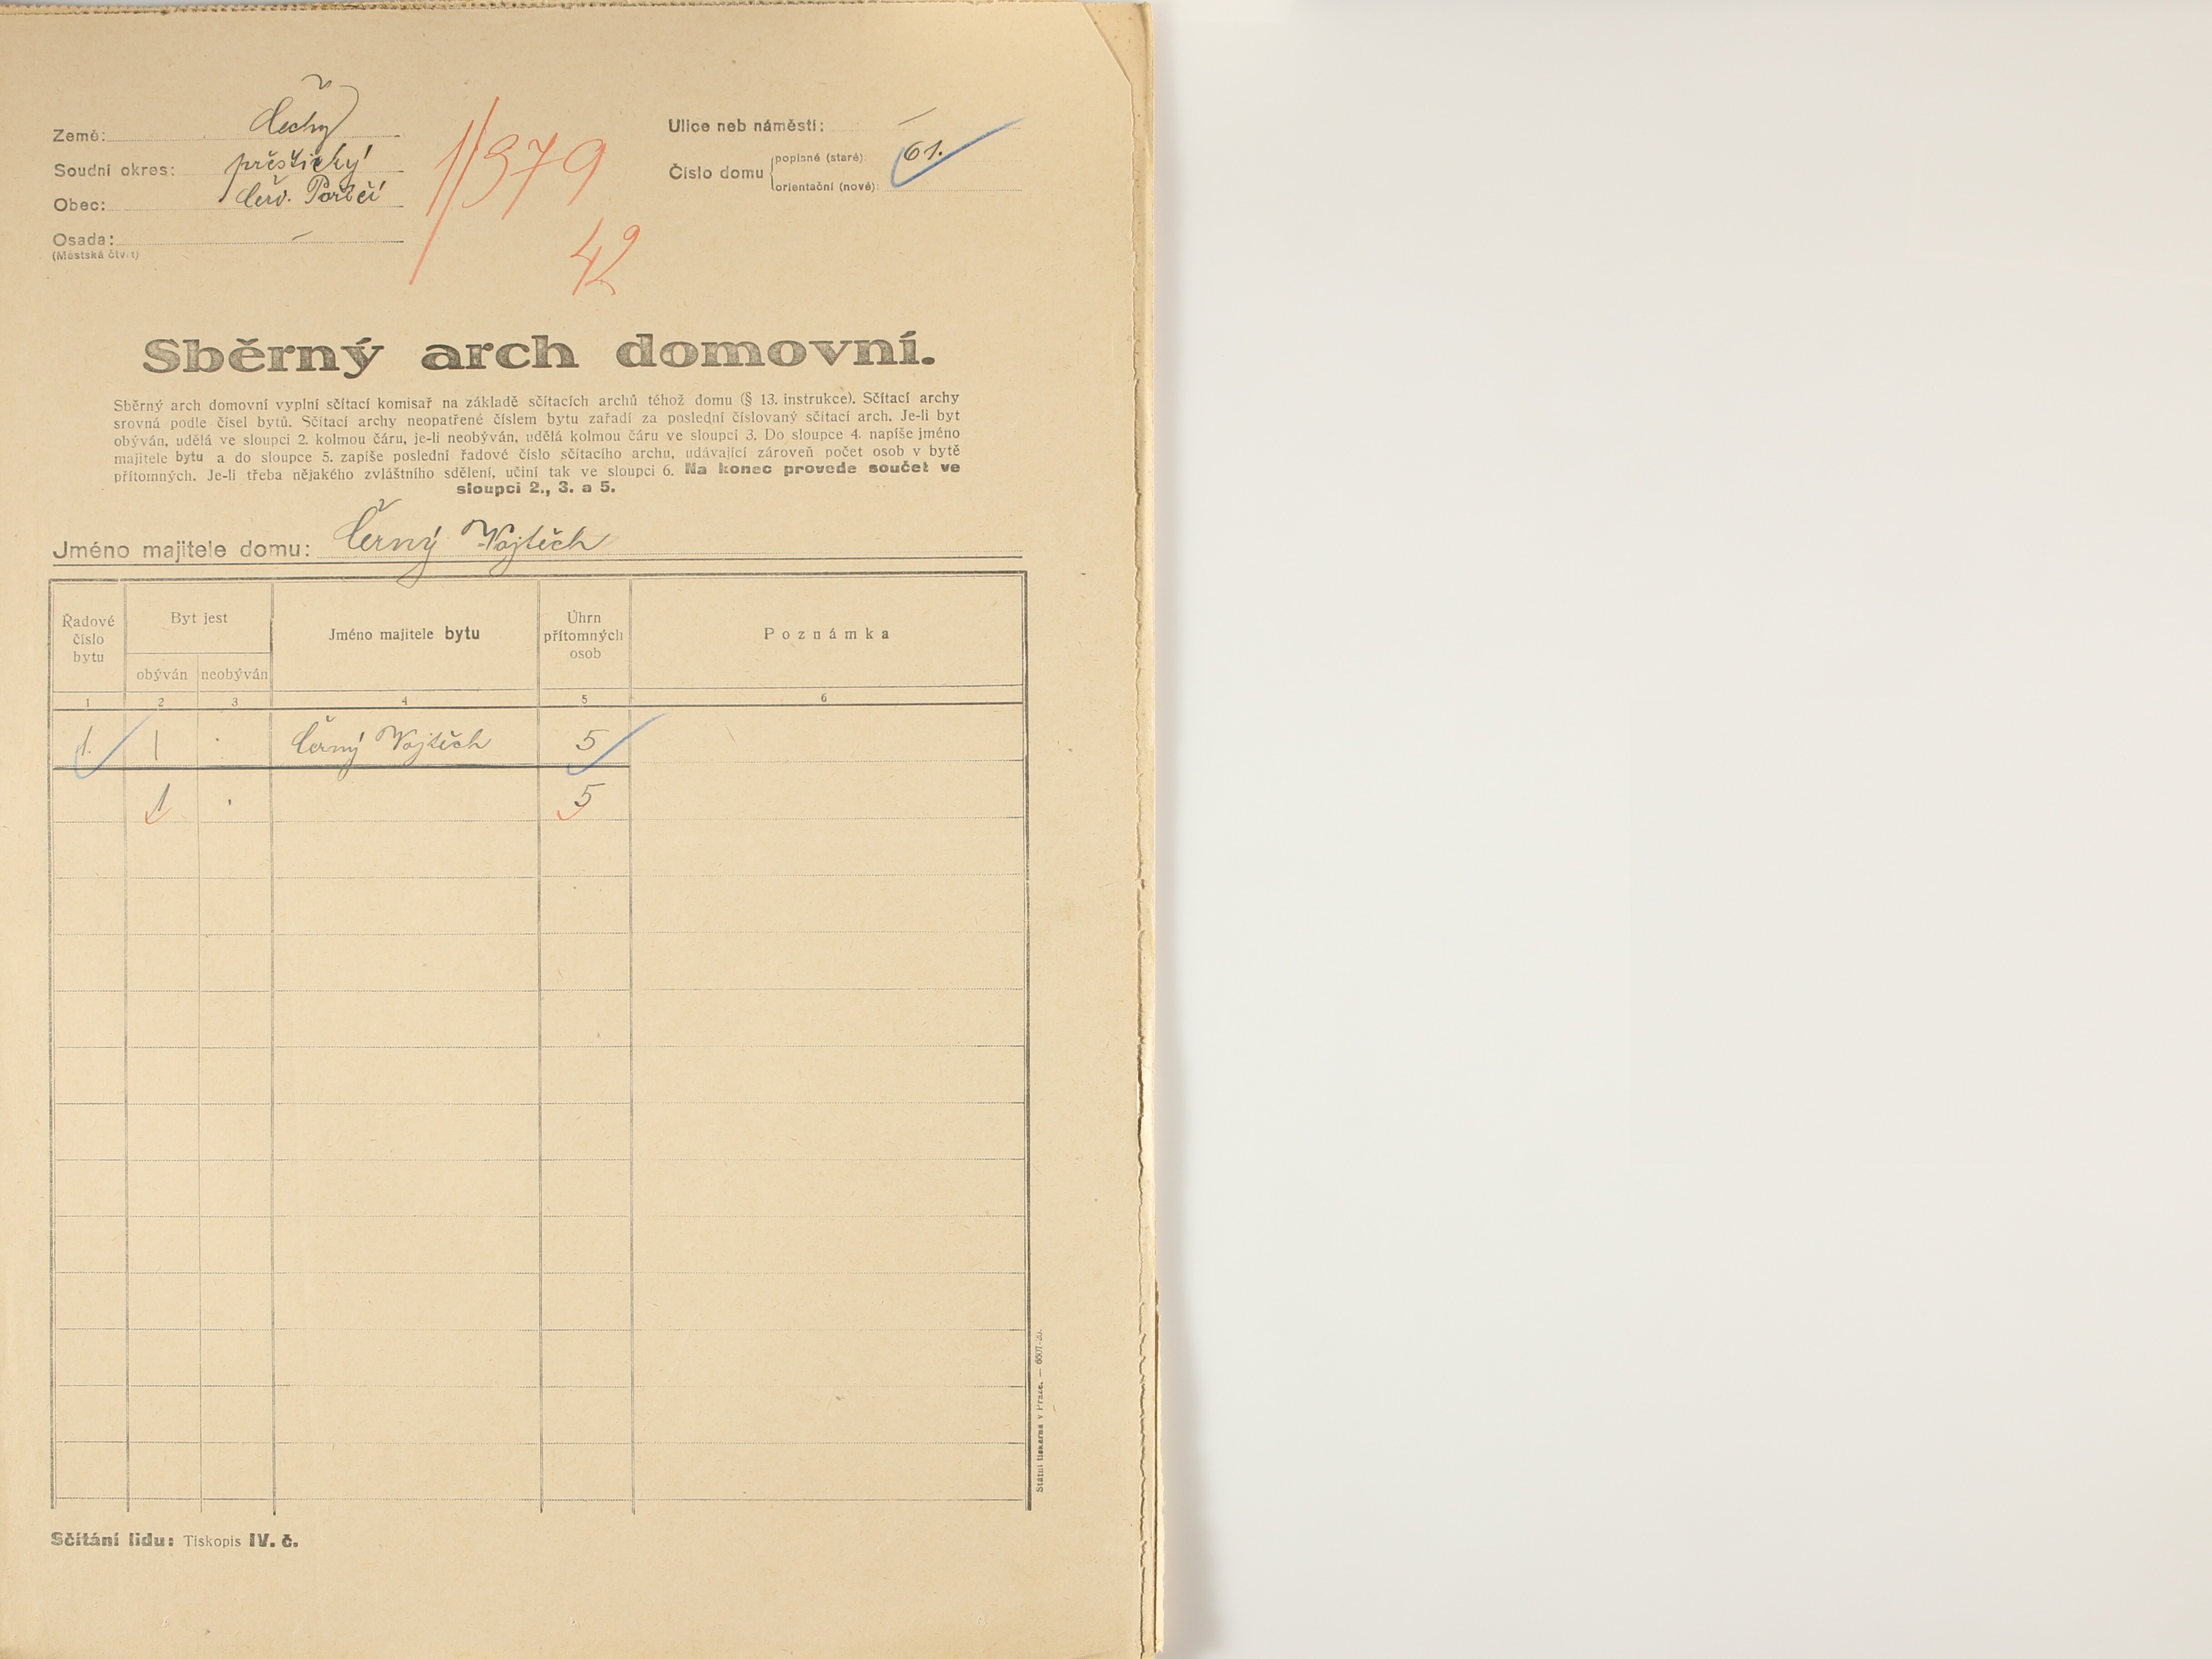 Země: Čechy
Soudní okres: přeštický
Obec: Červ. Poříčí
Osada: –
(Městská čtvrt)
1/379
42
Ulice neb náměstí: –
Číslo domu
popisné (staré) 61.
orientační (nové):
Sběrný arch domovní.
Sběrný arch domovní vyplní sčítací komisař na základě sčítacích archů téhož domu (§ 13. instrukce). Sčítací archy
srovná podle čísel bytů. Sčítací archy neopatřené číslem bytu zařadí za poslední číslovaný sčítací arch. Je-li byt
obýván, udělá ve sloupci 2. kolmou čáru, je-li neobýván, udělá kolmou čáru ve sloupci 3. Do sloupce 4. napíše jméno
majitele bytu a do sloupce 5. zapíše poslední řadové číslo sčítacího archu, udávající zároveň počet osob v bytě
přítomných. Je-li třeba nějakého zvláštního sdělení, učiní tak ve sloupci 6. Na konec provede součet ve
sloupci 2., 3. a 5.
Jméno majitele domu: Černý Vojtěch
Řadové číslo bytu
Byt jest
obýván neobýván
Jméno majitele bytu
Úhrn přítomných osob
Poznámka
1 2 3 4 5 6
1. | · Černý Vojtěch 5
1 · 5
Státní tiskárna v Praze. — 6007-20.
Sčítání lidu: Tiskopis IV. č.